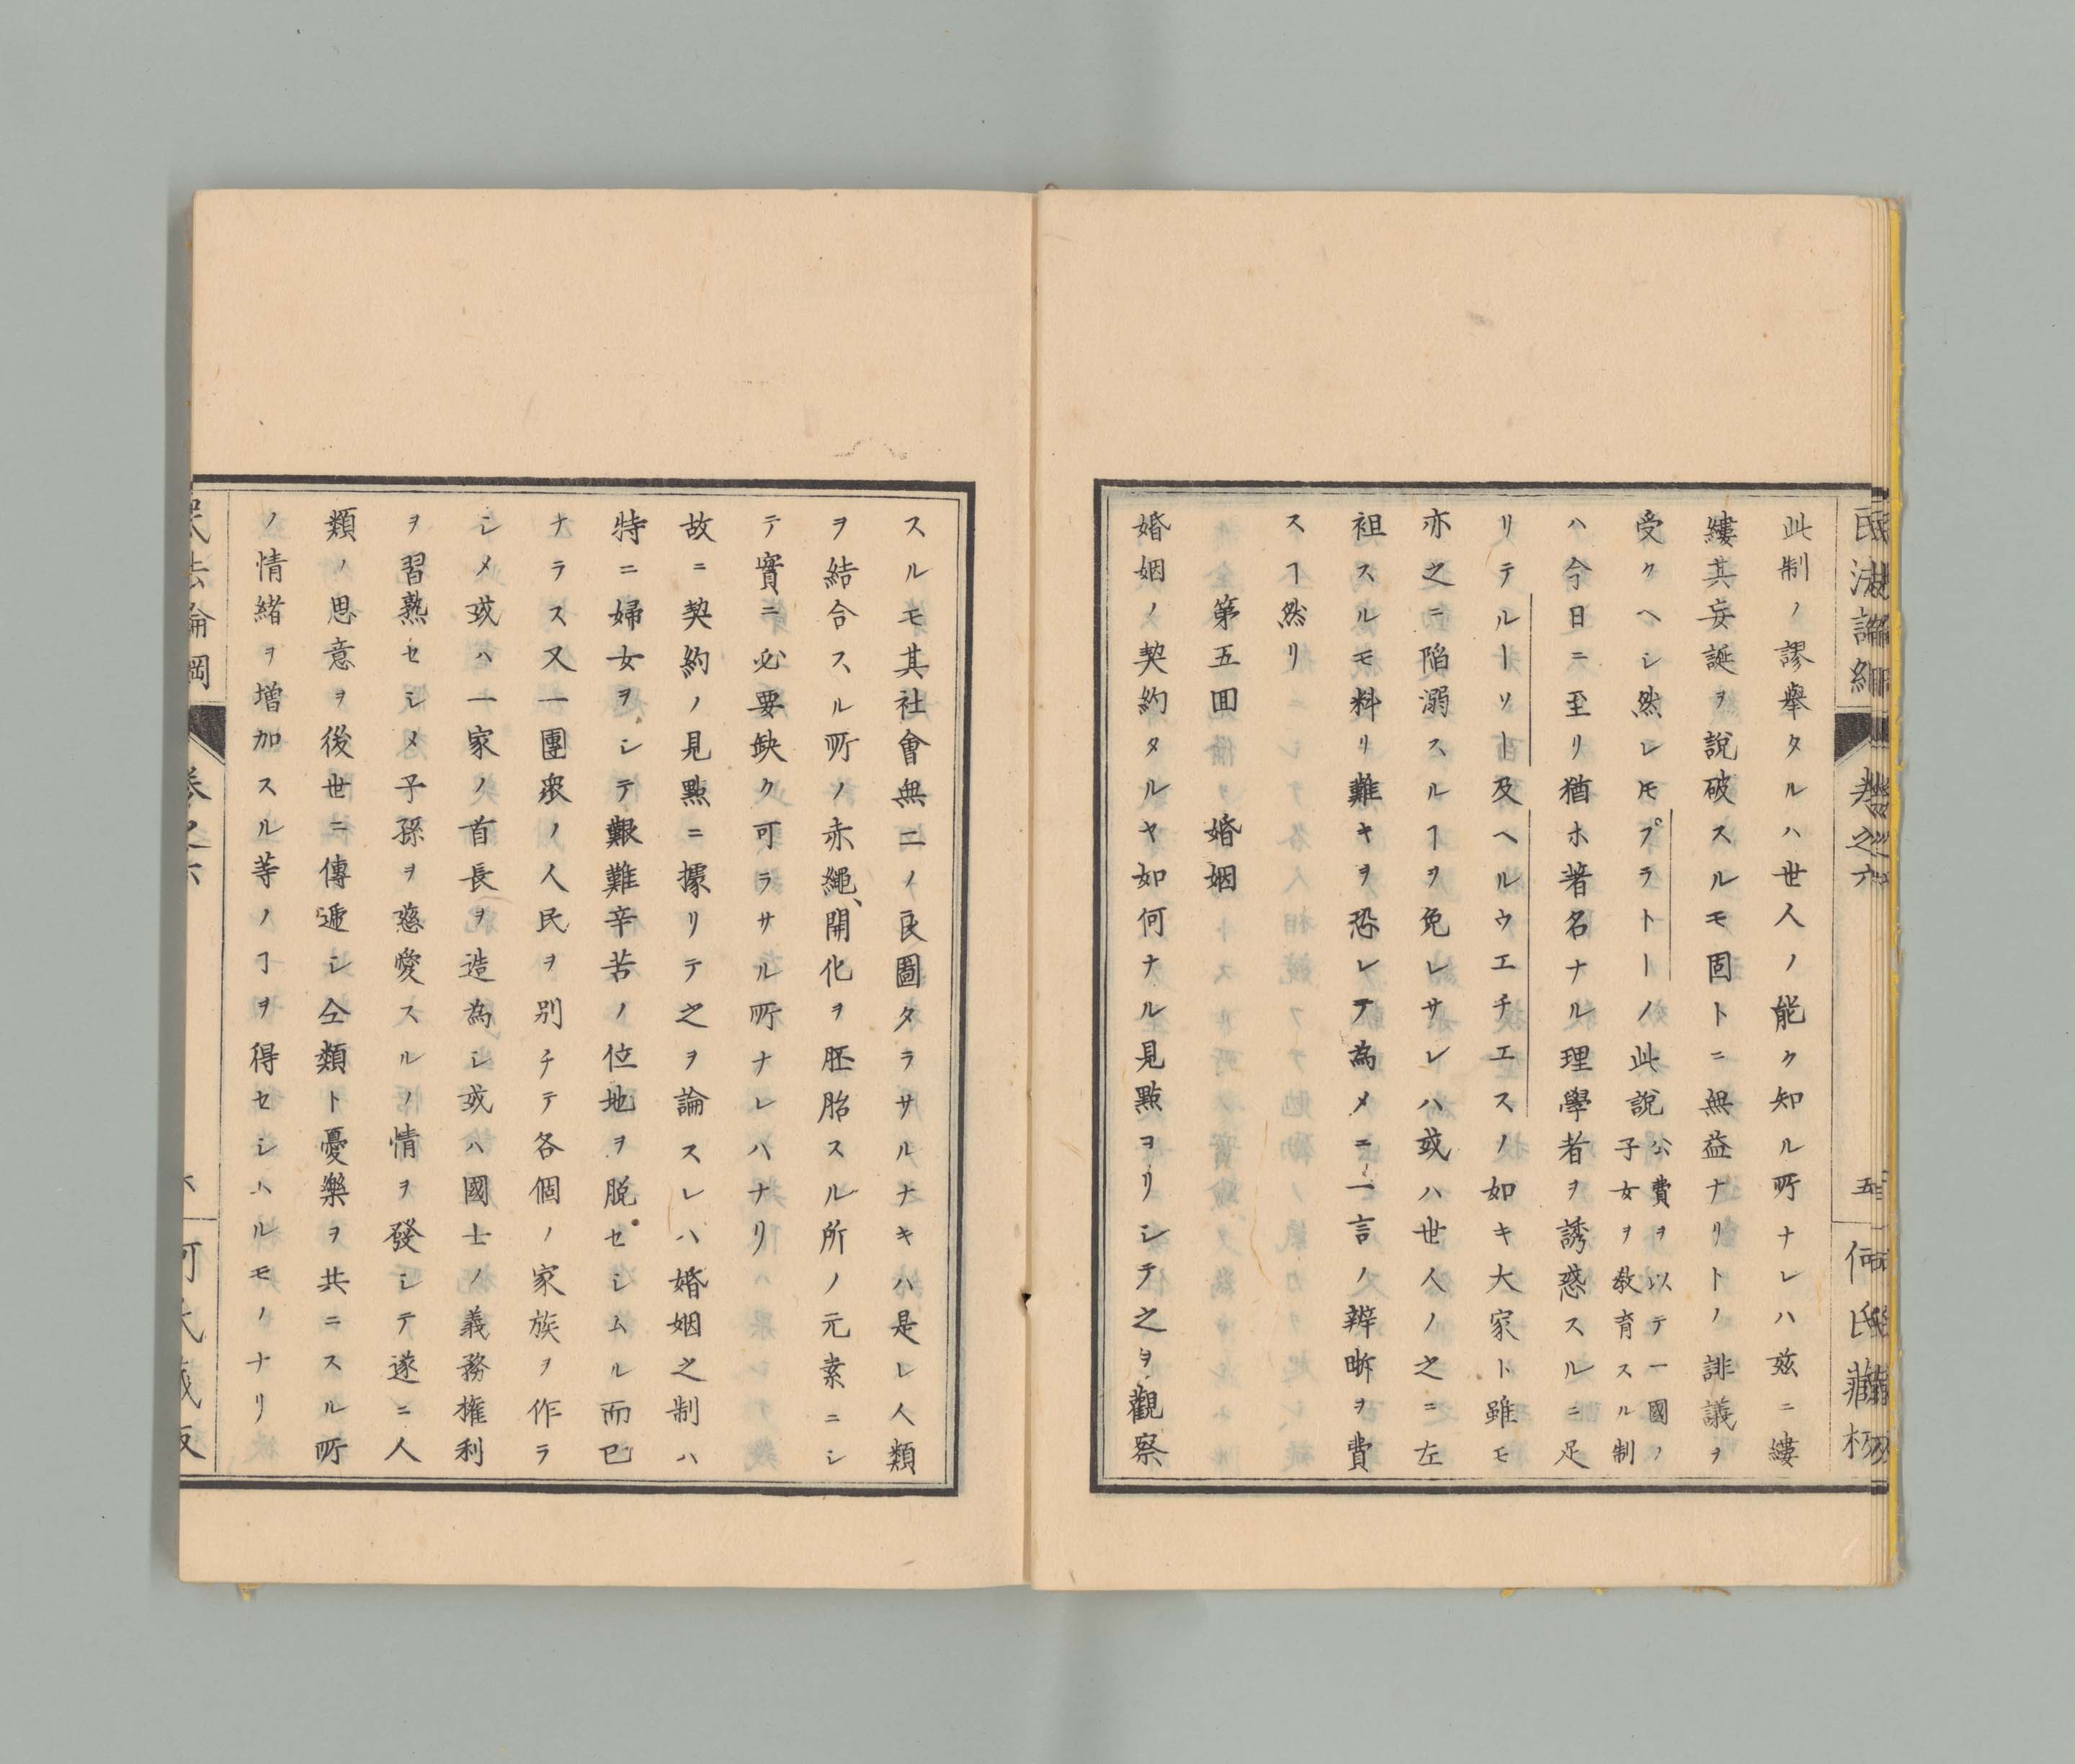 此制ノ謬舉タルハ世人ノ能ク知ル所ナレハ茲ニ縷
縷其妄誕ヲ說破スルモ固トニ無益ナリトノ誹議ヲ
受クヘシ然レ𪜈プラトーノ此說公費ヲ以テ一國ノ子女ヲ敎育スル制
ハ今日ニ至リ猶ホ著名ナル理學者ヲ誘惑スルニ足
リテルーソー及ヘルウエチエスノ如キ大家ト雖モ
亦之ニ陷溺スルヿヲ免レサレハ或ハ世人ノ之ニ左
袒スルモ料リ難キヲ恐レテ為メニ一言ノ辨晣ヲ費
スヿ然リ
第五囬 婚姻
婚姻ノ契約タルヤ如何ナル見點ヨリシテ之ヲ觀察
民法論綱 卷之六 五 何氏藏板
スルモ其社會無二ノ良圖タラサルナキハ是レ人類
ヲ結合スル所ノ赤繩、開化ヲ胚胎スル所ノ元素ニシ
テ實ニ必要缺ク可ラサル所ナレハナリ
故ニ契約ノ見點ニ據リテ之ヲ論スレハ婚姻之制ハ
特ニ婦女ヲシテ艱難辛苦ノ位地ヲ脫セシムル而已
ナラス又一團衆ノ人民ヲ別チテ各個ノ家族ヲ作ラ
シメ或ハ一家ノ首長ヲ造為シ或ハ國士ノ義務權利
ヲ習熟セシメ子孫ヲ慈愛スルノ情ヲ發シテ遂ニ人
類ノ思意ヲ後世ニ傳遞シ仝類ト憂樂ヲ共ニスル所
ノ情緒ヲ增加スル等ノヿヲ得セシムルモノナリ
民法論綱 卷之六 何氏藏板